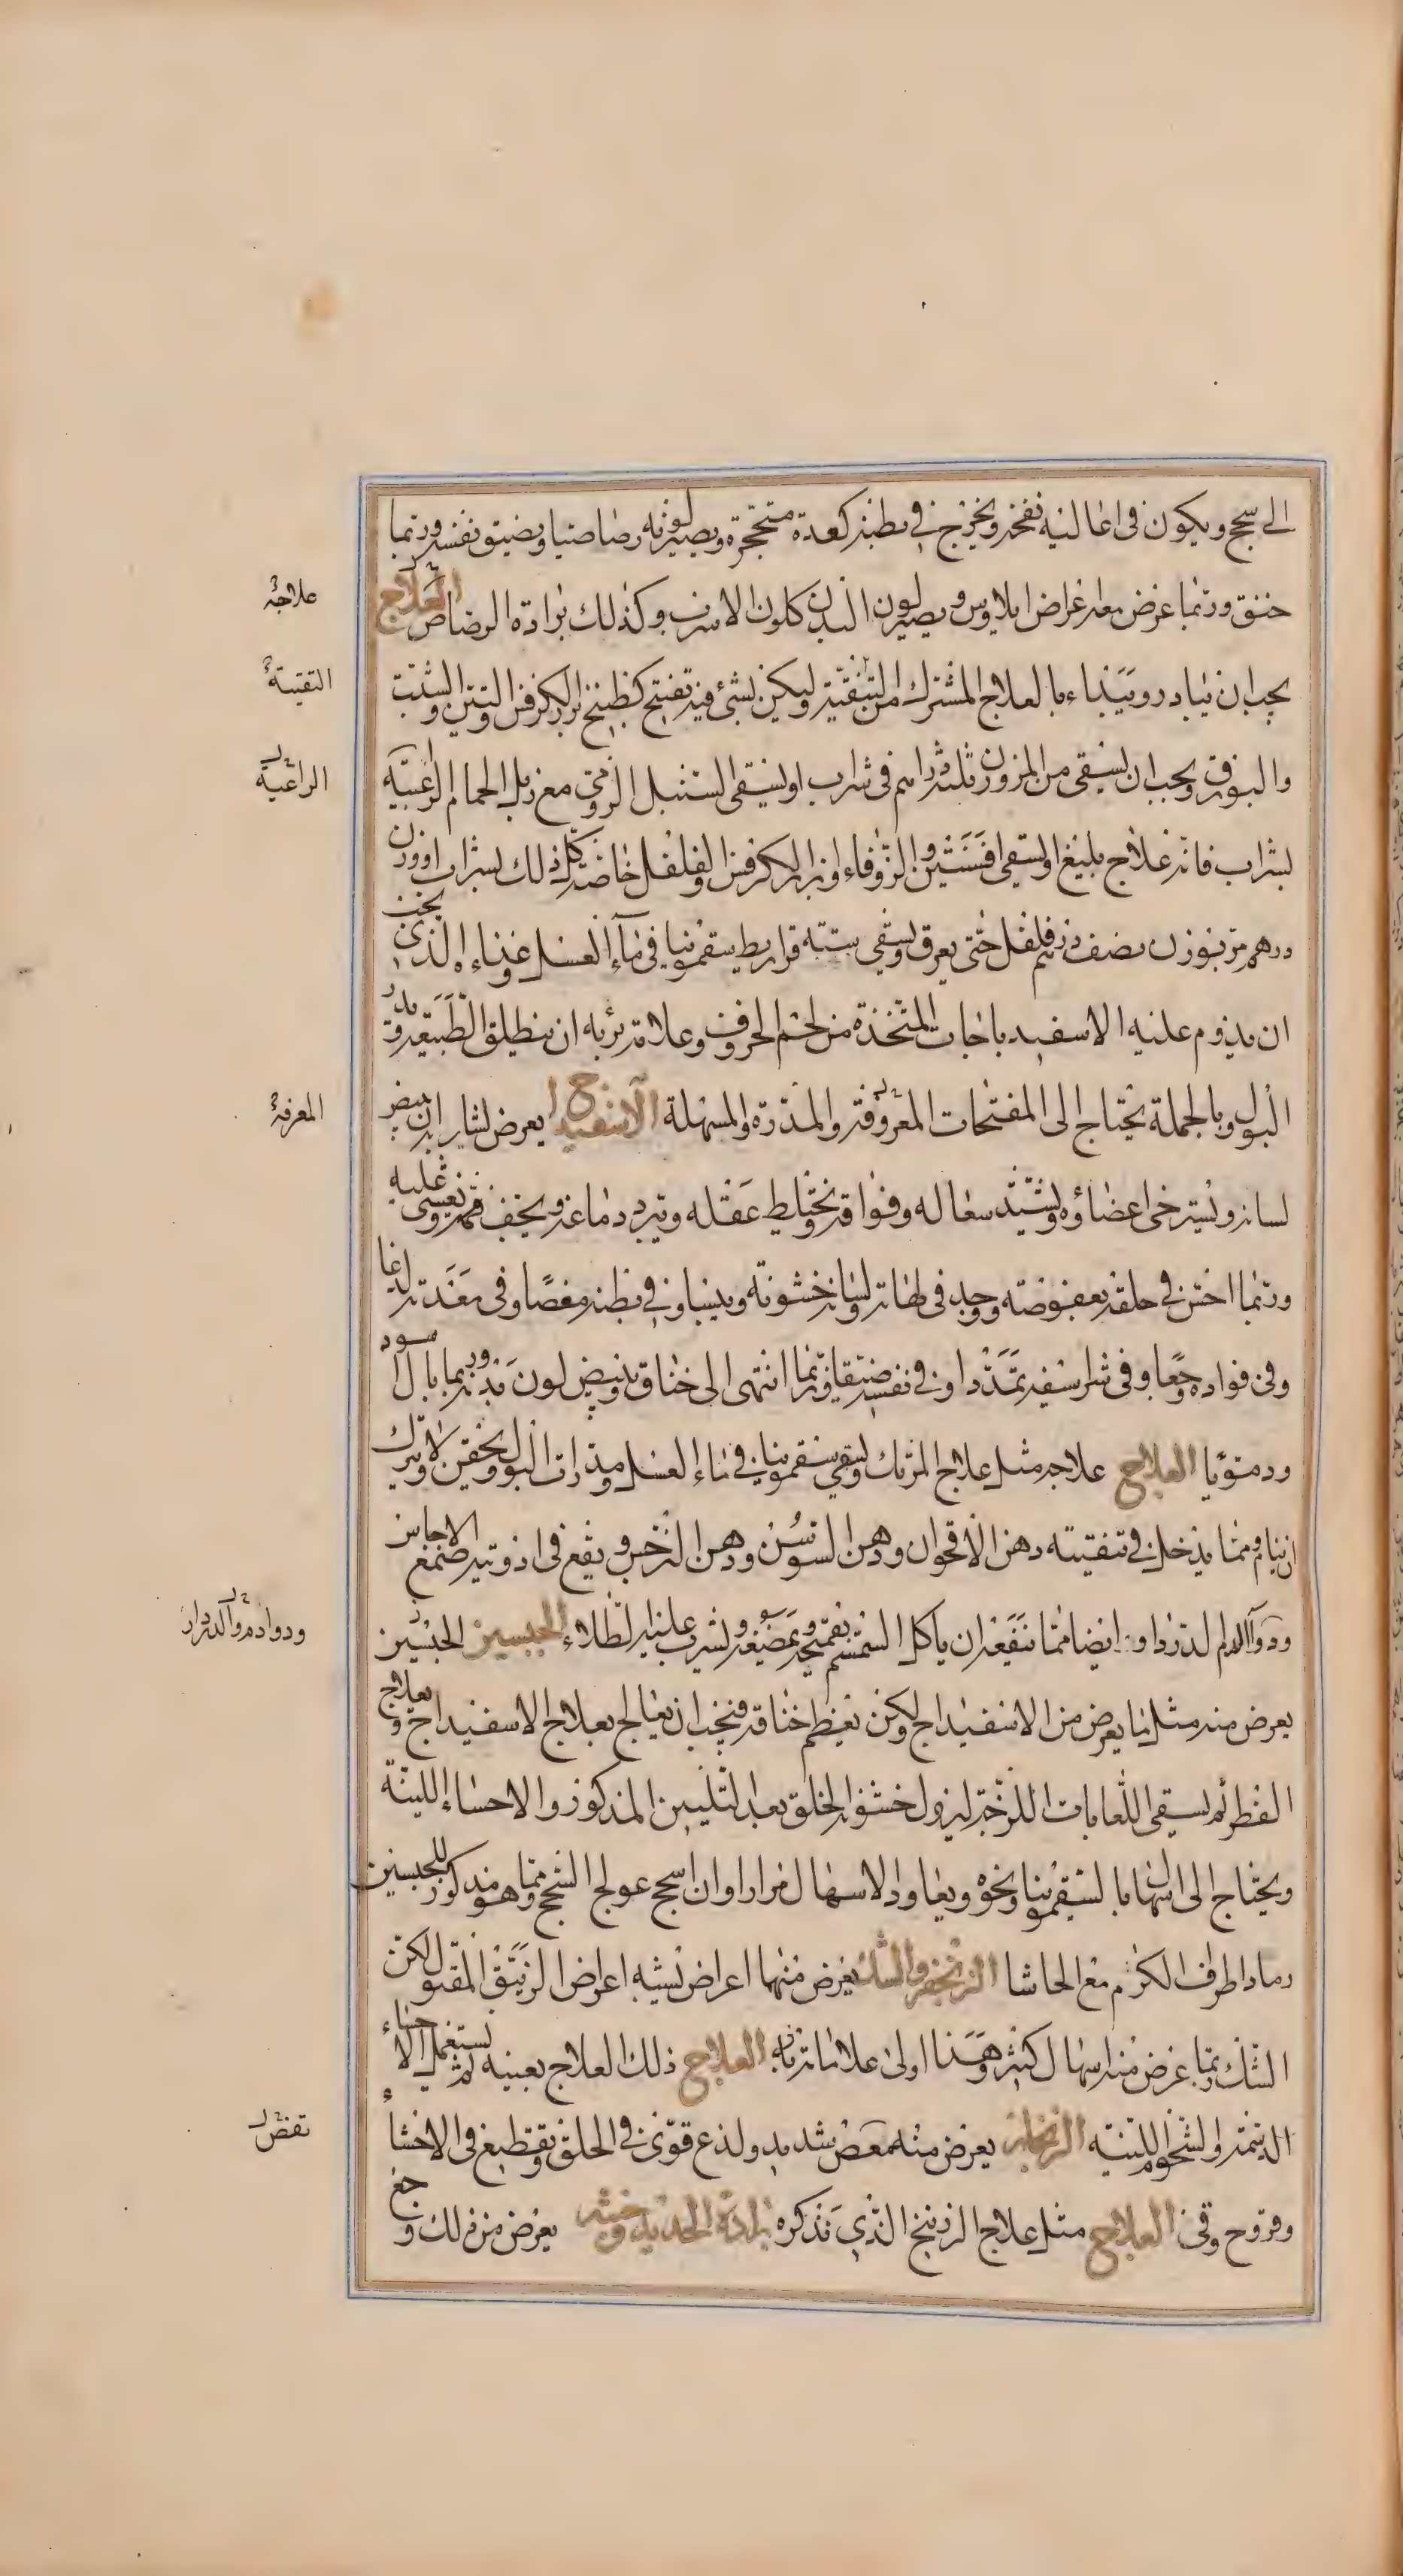 الى سحج ويكون في اعاليه نفخ ويخرج في بطنه كعدة متحجرة ويصير لونه رصاصيا ويضيق نفسه وربما
خنق وربما عرض معه اعراض ايلاوس ويصير لون البدن كلون الاسرب وكذلك برادة الرصاص العلاج
يجب ان يبادر ويبتداء بالعلاج المشترك من التنقية وليكن بشئ فيه تفتيح كطبيخ بزر الكرفس والتين والشبت
والبورق ويجب ان يسقى من المر وزن ثلثة دراهم في شراب او يسقى السنبل الرومي مع زبل الحمام الراعبية
بشراب فانه علاج بليغ او يسقى افسنتين والزوفاء او بزر الكرفس والفلفل خاصة كل ذلك بشراب او وزن
درهم تربد وزن نصف درهم فلفل حتى يعرق ويسقى ستة قراريط سقمونيا في ماء العسل وغذاءه الذي يجب
ان يدوم عليه الاسفيدباجات المتخذة من لحم الخروف وعلامة برئه ان ينطلق الطبيعة ويدر
البول وبالجملة يحتاج الى المفتحات المعروفة والمدرة والمسهلة الاسفيداج يعرض لشاربه ان يبيض
لسانه ويسترخى اعضاؤه ويشتد سعاله وفواقه ويختلط عقله ويبرد دماغه ويجف فمه ويغشى عليه
وربما احس في حلقه بعفوصة ووجد في لهاته ولسانه خشونة ويبسا وفي بطنه مغصا وفي معدته لذعا
وفي فواده وجعا وفي شراسيفه تمددا وفي نفسه ضيقا وربما انتهى الى خناق ويبيض لون بدنه وربما بال اسود
ودمويا العلاج علاجه مثل علاج المرتك ويسقى سقمونيا في ماء العسل ومدرات البول ويحقن ولا يترك
ان ينام ومما يدخل في تنقيته دهن الاقحوان ودهن السوسن ودهن النرجس ويقع في ادويته صمغ الاجاص
ودواالدام لدردار و ايضا مما ينفعه ان ياكل السمسم يقمحه ويمضغه ويشرب عليه الطلاء الجبسين الجبسين
يعرض منه مثل ما يعرض من الاسفيداج ولكن يغلظم خناقه فيجب ان يعالج بعلاج الاسفيداج وبعلاج
الفطر ثم يسقى اللعابات اللزجة ليزول خشونة الحلق بعد التليين المذكور والاحساء اللينة
ويحتاج الى اسهال بالسقمونيا ونحوه ويعاود الاسهال مرارا وان اسحج عولج السحج ومما هو مذكور للجبسين
رماد اطراف الكرم مع الحاشا الزنجفر والشك يعرض منهما اعراض يشبه اعراض الزيبق المقتول لكن
الشك ربما عرض منه اسهال كثير وهذا اولى علاماته به العلاج ذلك العلاج بعينه ثم يستعمل الاحساء
الدسمة والشحوم اللينة الزنجار يعرض منه مغص شديد ولذع قوى في الحلق وتقطيع في الاحشاء
وقروح وقئ العلاج مثل علاج الزرنيخ الذي نذكره برادة الحديد وخبثه يعرض من ذلك وجع
علاجه
التقيتة
الراعية
المعرفة
ودواد مرو الدردار
تقض